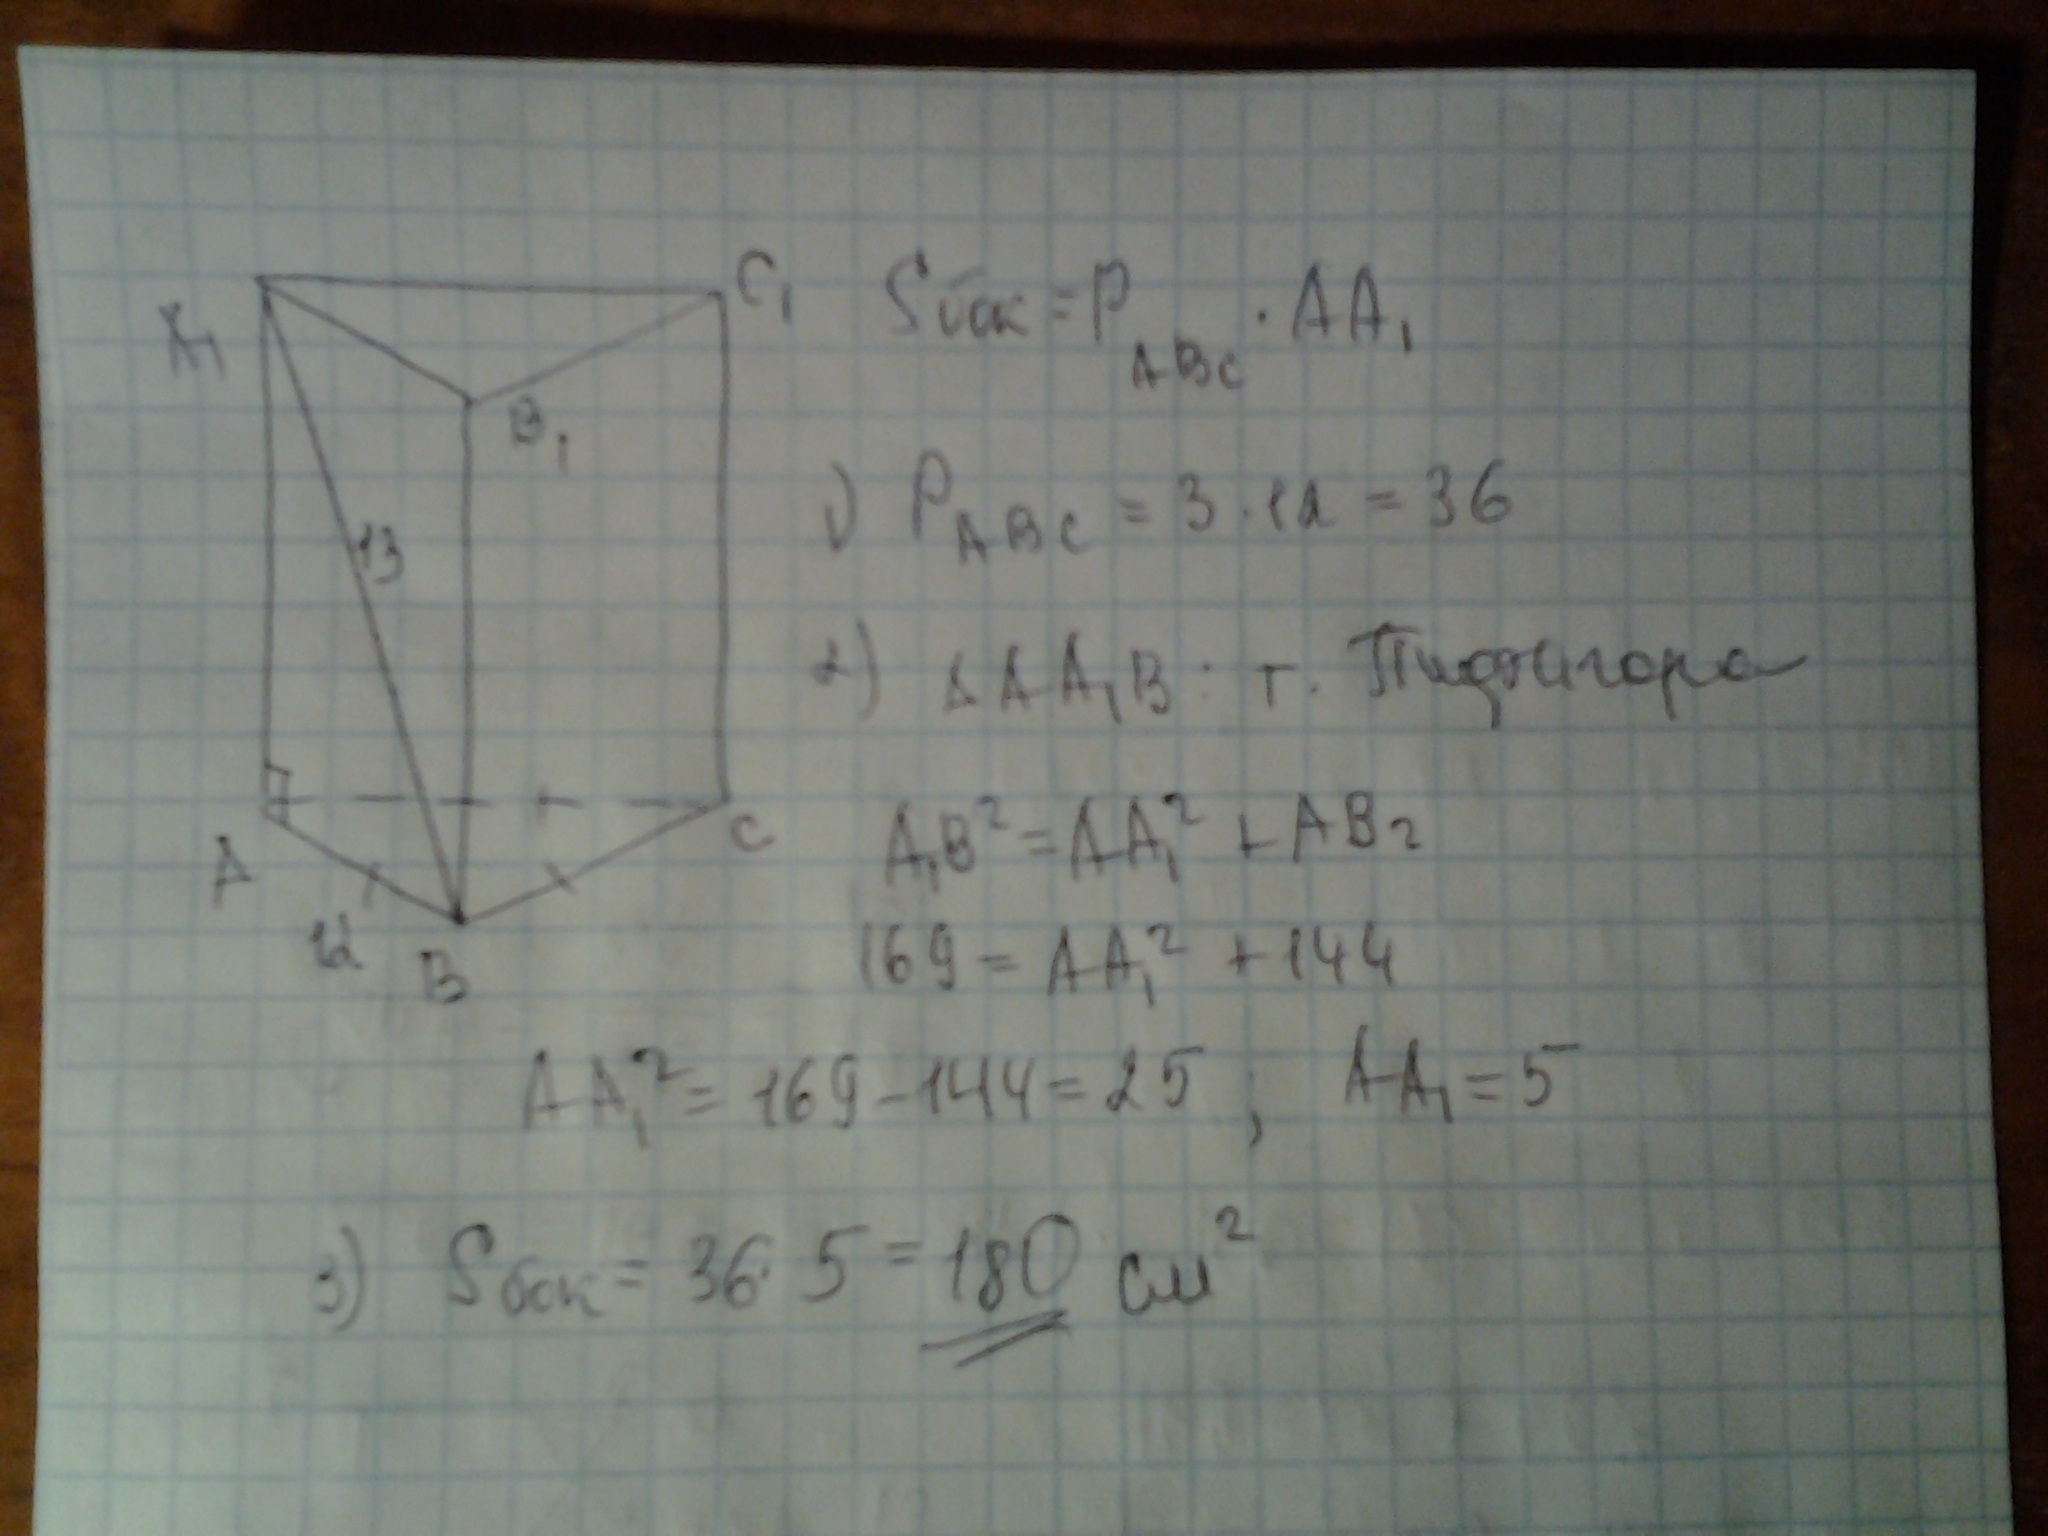 A₁
C₁
B₁
13
A
C
12
B
Sбок = P_ABC · AA₁
1) P_ABC = 3 · 12 = 36
2) Δ AA₁B : т. Пифагора
A₁B² = AA₁² + AB²
169 = AA₁² + 144
AA₁² = 169 - 144 = 25 , AA₁ = 5
3) Sбок = 36 · 5 = 180 см²